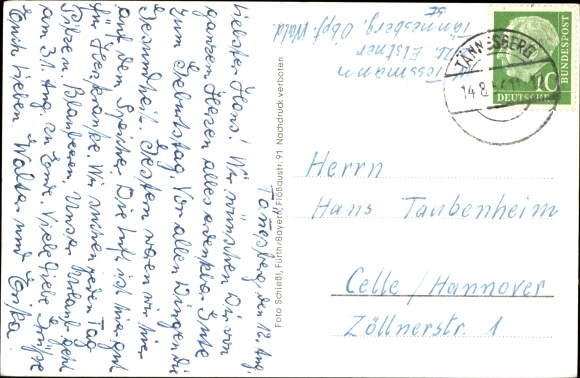 Tännesberg, den 12. Aug.
Liebster Hans! Wir wünschen Dir von
ganzem Herzen alles erdenkbar Gute
zum Geburtstag. Vor allen Dingen die
Gesundheit. Gestern waren wir hier
auf dem Speicher. Die Luft ist hier gut
für Herzkranke. Wir suchen jeden Tag
Pilze u. Blaubeeren. Unser Urlaub geht
am 31. Aug. zu Ende. Viele liebe Grüße
Euch Lieben Walter und Erika
Foto Schießl, Fürth/Bayern, Floßaustr. 91 Nachdruck verboten
Tessmann
Elstner
Tännesberg, Obpf. Wald.
TÄNNESBERG
14.8.
10
DEUTSCHE
BUNDESPOST
Herrn
Hans Taubenheim
Celle/Hannover
Zöllnerstr. 1